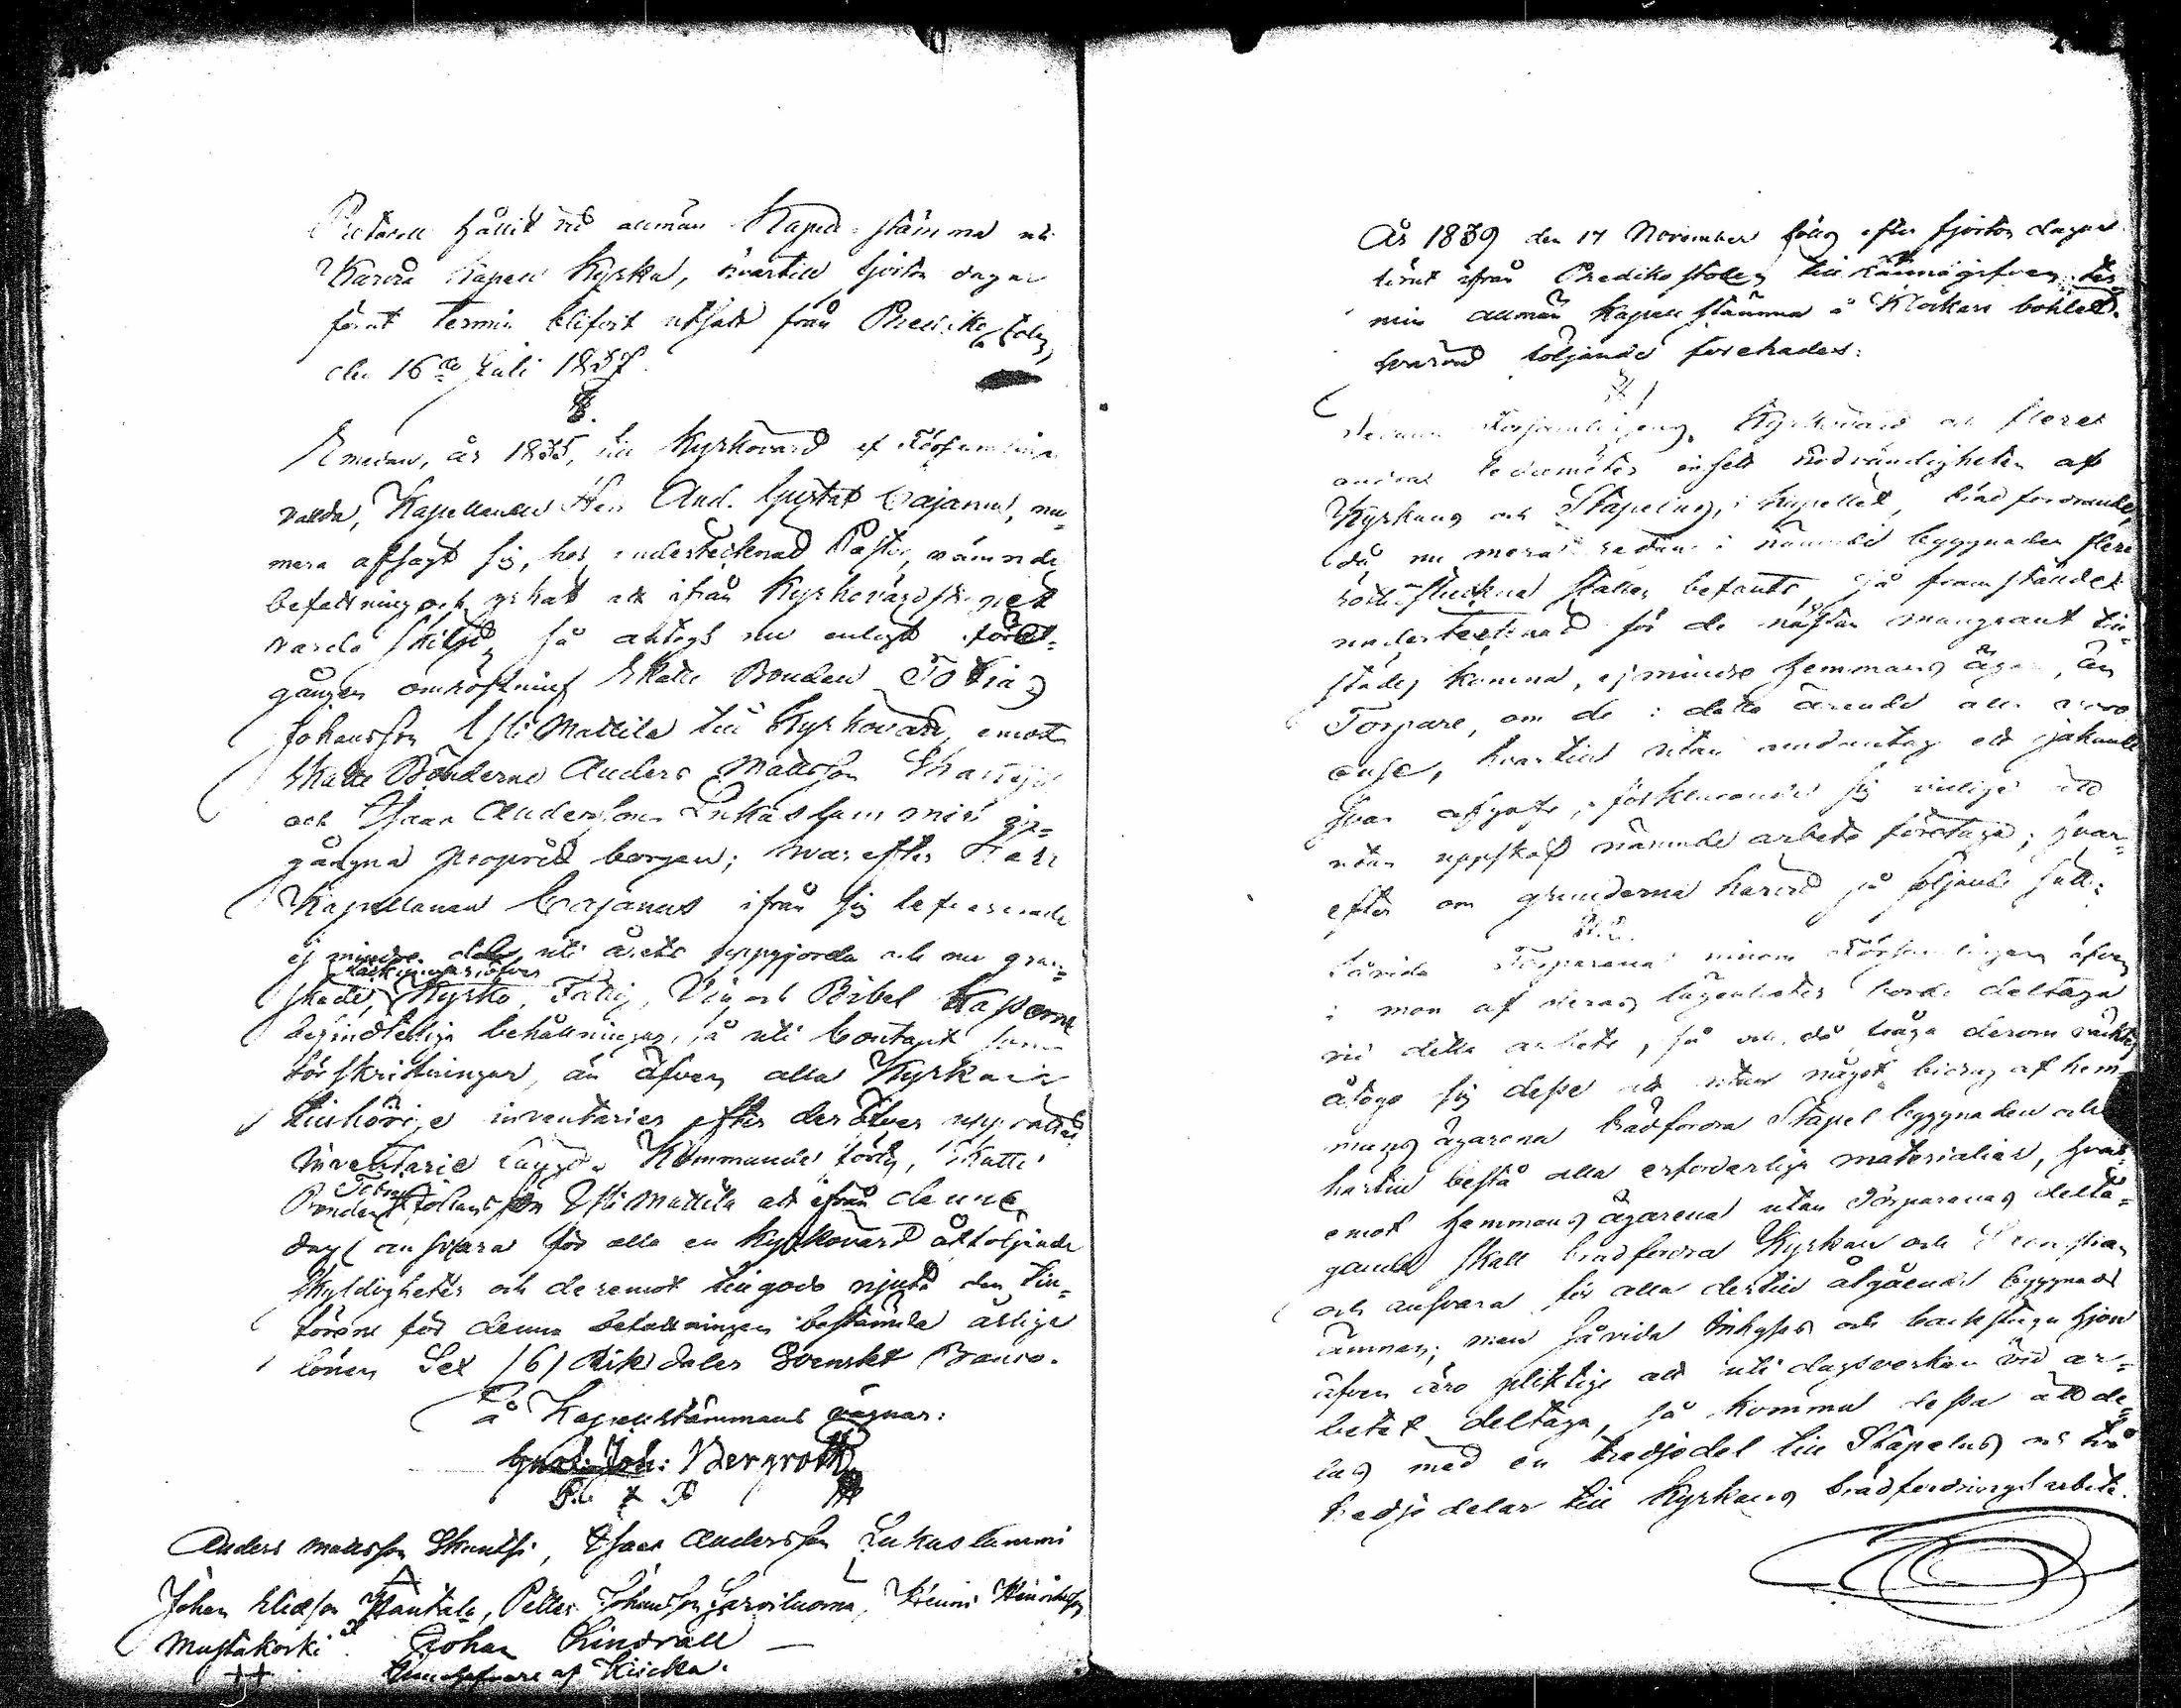 Protocoll hållit vid allmän Kapell-stämma uti
Karvia Kapell Kyrka, hvartill fjorton dagar
förut termin blifvit utsatt från Predikostolen,
den 16de Juli 1837.
§.
Emedan, år 1835, till Kyrkovärd af Församlingen
valda, Kapellanen Herr And. Gustaf Cajanus, nu-
mera afsagt sig, hos undertecknad Pastor, nämnde
befattning och yrkat att ifrån Kyrkovärdskapet
varda skild, så antogs nu enligt föret-
gången omröstning Skatte Bonden Tobias
Johansson Yli Mattila till Kyrkovärd, emot
Skatte Bönderne Anders Mattsson Skantsi
och Isaac Andersson Lukaslammis in-
gångna proprie borgen; hvarefter Herr
Kapellanen Cajanus ifrån sig lefvererade
ej mindre de uti årets uppgjorda och nu gran-
skade, räkningar öfver Kyrko, Fattig, Vin och Bibel Kassorne
befindtelige behållningar, så uti Contant som
förskrifningar, än äfven alla Kyrkan
tillhörige inventarier efter deröfver upprättad
Inventarie Längd. Kommande förty, Skatte
Bonden Tobias Johansson Yli Mattila att ifrån denne
dag ansvara för alla en Kyrkovärd åtföljande
skyldigheter och deremot tillgodo njuta den till-
förene för denna befattningen bestämda årliga
lönen Sex /6/ Riksdaler Svenskt Banco.
På Kapellstämmans vägnar:
Gust. Joh: Bergroth
Anders Mattsson Skantsi, Isaac Andersson Lukaslammi
Johan Eliasson Hautala, Petter Johansson Sarviluoma, Henric Henricsson
Mustakorki. Johan Lindvall
af Kiicka.
År 1839 den 17 November hölls efter fjorton dagar
förut ifrån Predikostolen tillkännagifven ter-
min allmän Kapellstämma å Klockars bohlet.
hvarvid följande förehades:
§ 1
Församlingens Kyrkovärd och flere
andra Ledamöter insett nödvändigheten af
Kyrkans och Stapelns, i Kapellet, brädfordrande,
då nu mera redan i nämnde byggnader flere
rötskadna ställen befants, så framstälde
undertecknad för de nästan mangrant till-
städes komna, ej mindre Hemmans ägare, än
Torpare, om de i detta ärende
ense, hvartill utan undantag ett jakande
svar afgafs, förklarande sig villige att
utan uppskof nämnde arbete företaga; hvar-
efter om grunderna härvid på följande sätt:
§ 2.
Såvida Torparena innom Församlingen äfven
i mon af deras lägenheter borde deltaga
vid detta arbete, så och, då fråga derom väcktes
åtogo sig desse att utan något bidrag af hem-
mans ägarena brädfordra Stapel byggnaden och
härtill bestå alla erforderliga materialier, hvar-
emot Hemmans ägarena utan Torparenas delta-
gande skall brädfordra Kyrkan och
och ansvara för alla dertill åtgående byggnads
ämnen; men såvida Inhyses och backstugu hjon
äfven äro pliktige att uti dagsverken vid ar-
betet deltaga, så komma dessa att de-
las med en tredjedel till Stapelns och två
tredje delar till Kyrkans brädfordringsarbete.